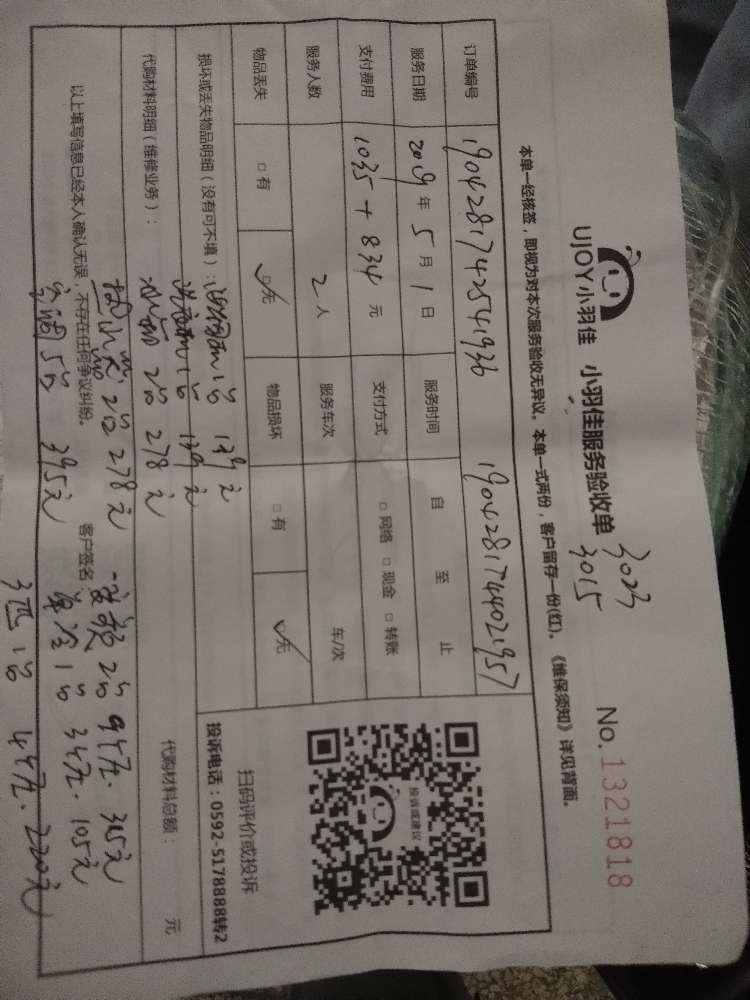 UJOY小羽佳 小羽佳服务验收单
3023
3015
No.1321818
本单一经核签，即视为对本次服务验收无异议。本单一式两份，客户留存一份(红)。《维保须知》详见背面。
订单编号 1904281742541936 1904281744021957
服务日期 2019年5月1日 服务时间 自 至 止
支付费用 1035+834元 支付方式 □网络 □现金 □转账
服务人数 2人 服务车次 车/次
物品丢失 □有 □无 物品损坏 □有 □无
损坏或丢失物品明细（没有可不填）：油烟机1台 139元
洗衣机1台 139元
代购材料明细（维修业务）： 冰箱2台 278元
代购材料总额： 元
2台 278元
2台 94元. 365元
以上填写信息已经本人确认无误，不存在任何争议纠纷。 客户签名
1台 34元. 105元
空调5台 395元
3匹1台 44元. 220元
投诉或建议
扫码评价或投诉
投诉电话：0592-5178888转2